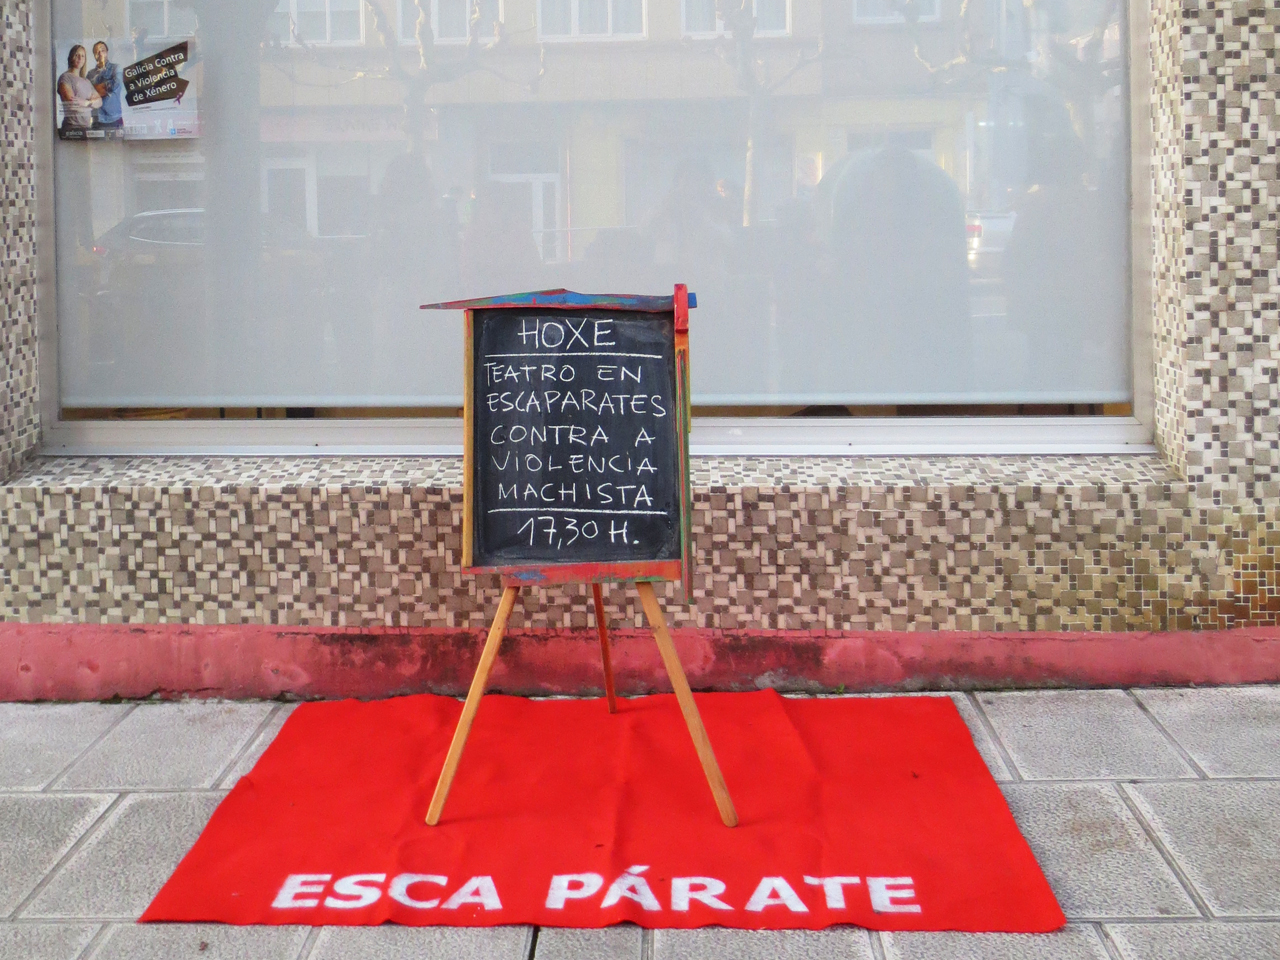 Galicia Contra
a Violencia
de Xénero
HOXE
TEATRO EN
ESCAPARATES
CONTRA A
VIOLENCIA
MACHISTA
17,30 H.
ESCA PÁRATE